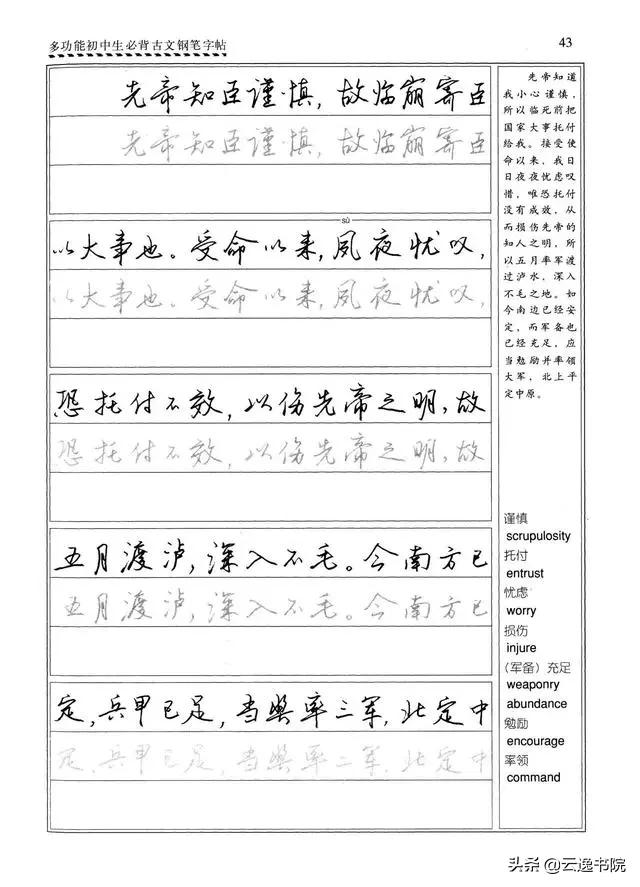 多功能初中生必背古文钢笔字帖
43
先帝知臣谨慎,故临崩寄臣
先帝知臣谨慎,故临崩寄臣
sù
以大事也。受命以来,夙夜忧叹,
以大事也。受命以来,夙夜忧叹,
恐托付不效,以伤先帝之明,故
恐托付不效,以伤先帝之明,故
五月渡泸,深入不毛。今南方已
五月渡泸,深入不毛。今南方已
定,兵甲已足,当与率三军,北定中
定,兵甲已足,当与率三军,北定中
先帝知道
我小心谨慎,
所以临死前把
国家大事托付
给我。接受使
命以来,我日
日夜夜忧虑叹
惜,唯恐托付
没有成效,从
而损伤先帝的
知人之明,所
以五月率军渡
过泸水,深入
不毛之地。如
今南边已经安
定,而军备也
已经充足,应
当勉励并率领
大军,北上平
定中原。
谨慎
scrupulosity
托付
entrust
忧虑
worry
损伤
injure
(军备)充足
weaponry
abundance
勉励
encourage
率领
command
头条@云逸书院